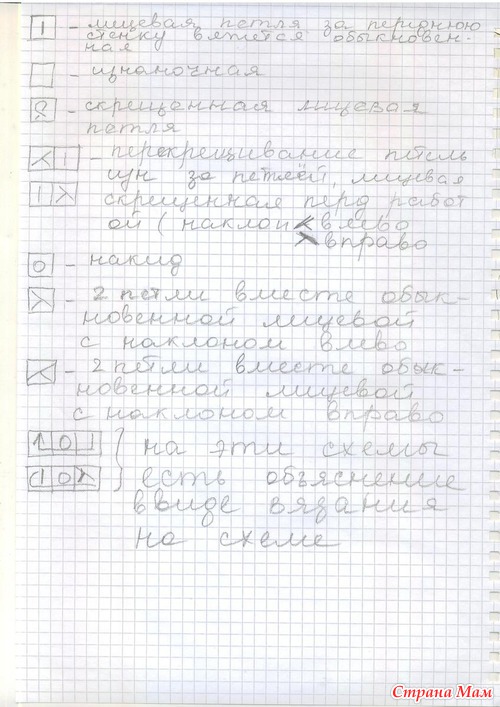 1 - лицевая петля за переднюю
стенку вяжется обыкновен-
ная
- изнаночная
- скрещенная лицевая
петля
- перекрещивание петель
за петлей, лицевая
скрещенная перд работ
ой ( наклон < влево
> вправо
о - накид
- 2 петли вместе обык-
новенной лицевой
с наклоном влево
- 2 петли вместе обык-
новенной лицевой
с наклоном вправо
на эти схемы
есть объяснение
ввиде вязания
на схеме
Страна Мам